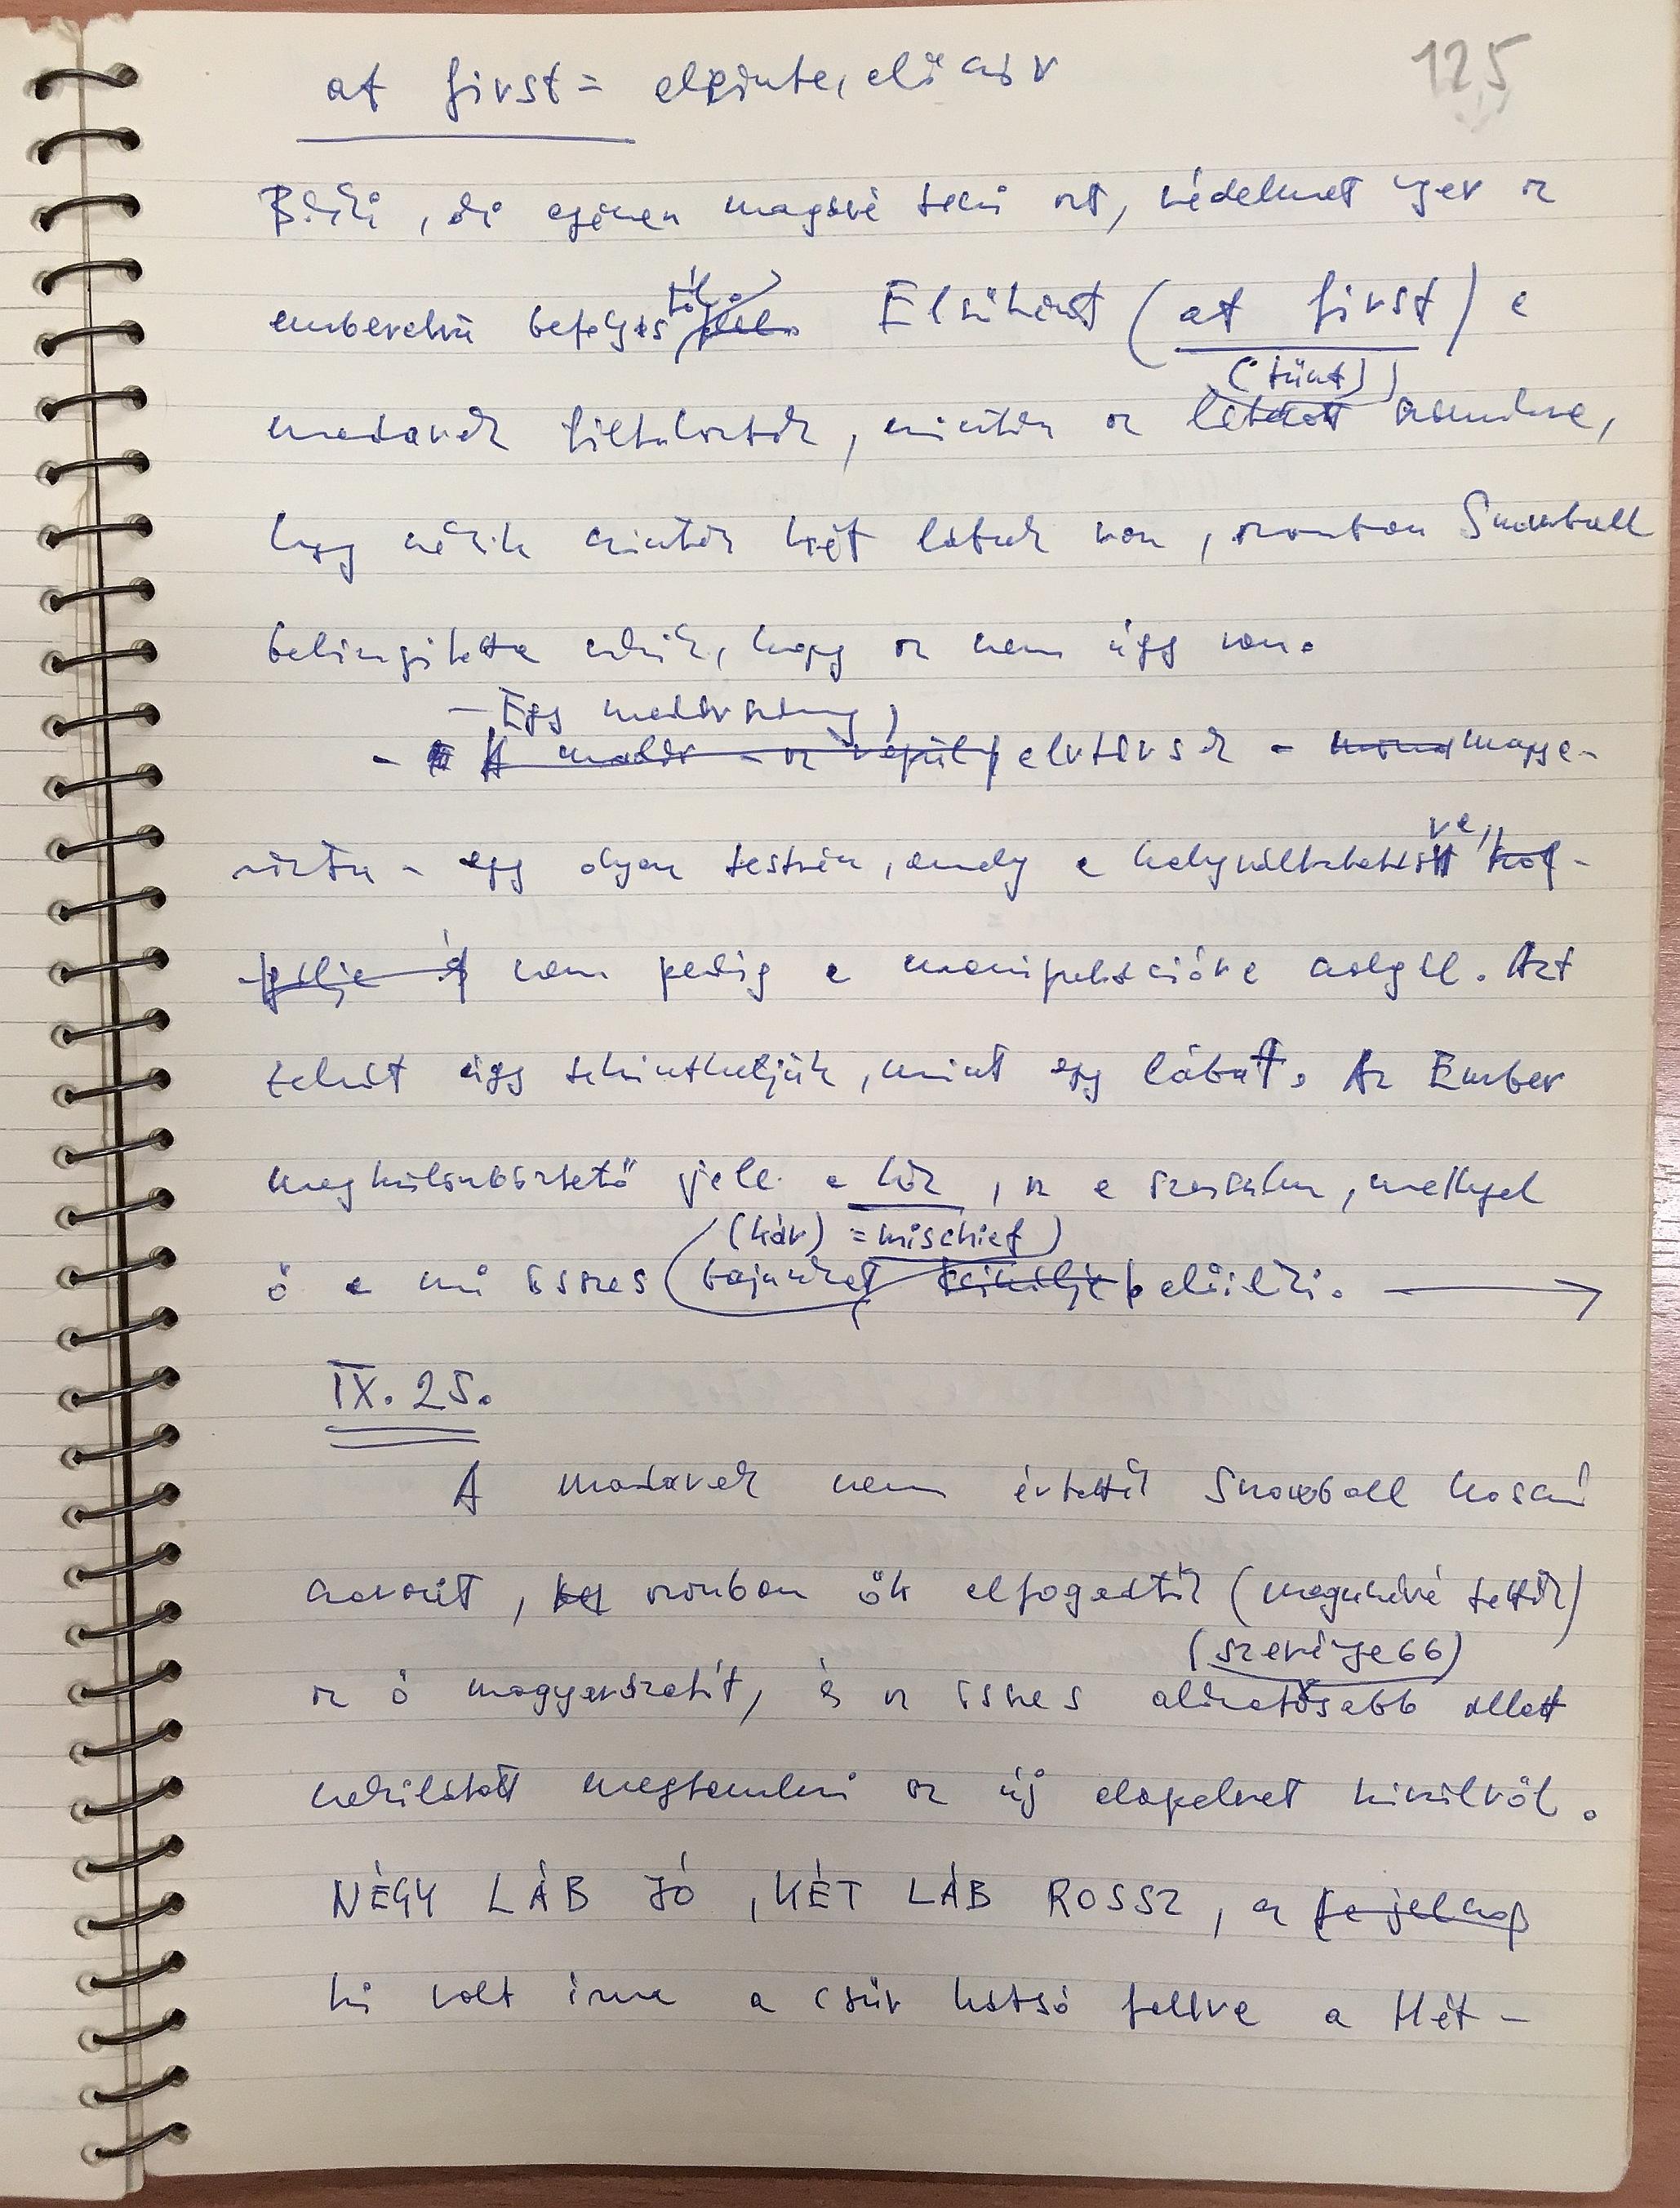 125
at first = eleinte, először
Bárki, aki egészen magáévá teszi ezt, védelmet nyer az
emberektől befolyástól. Elsőként (at first) a
(tűnt)
madarak tiltakoztak, miután az látszott számukra,
hogy nékik miután két lábuk van, azonban Snowball
bebizonyította nekik, hogy az nem úgy van.
- Egy madárszárny,
- A madár - az repül, elvtársak - mond magya-
rázta - egy olyan testrész, amely a helyváltoztatásra,
nem pedig a manipulációra szolgál. Azt
tehát úgy tekinthetjük, mint egy lábat. Az Ember
megkülönböztető jele a kéz, az a szerszám, mellyel
(kár) = mischief)
ő a mi összes bajunkat csinálja előidézi. →
IX. 25.
A madarak nem értették Snowball hosszú
szavait, azonban ők elfogadták (magukévá tették)
(szerényebb)
az ő magyarázatát, és az összes alázatosabb állat
nekilátott megtanulni az új alapelvet kívülről.
NÉGY LÁB JÓ, KÉT LÁB ROSSZ, a
ki volt írva a csűr hátsó falára a Hét-